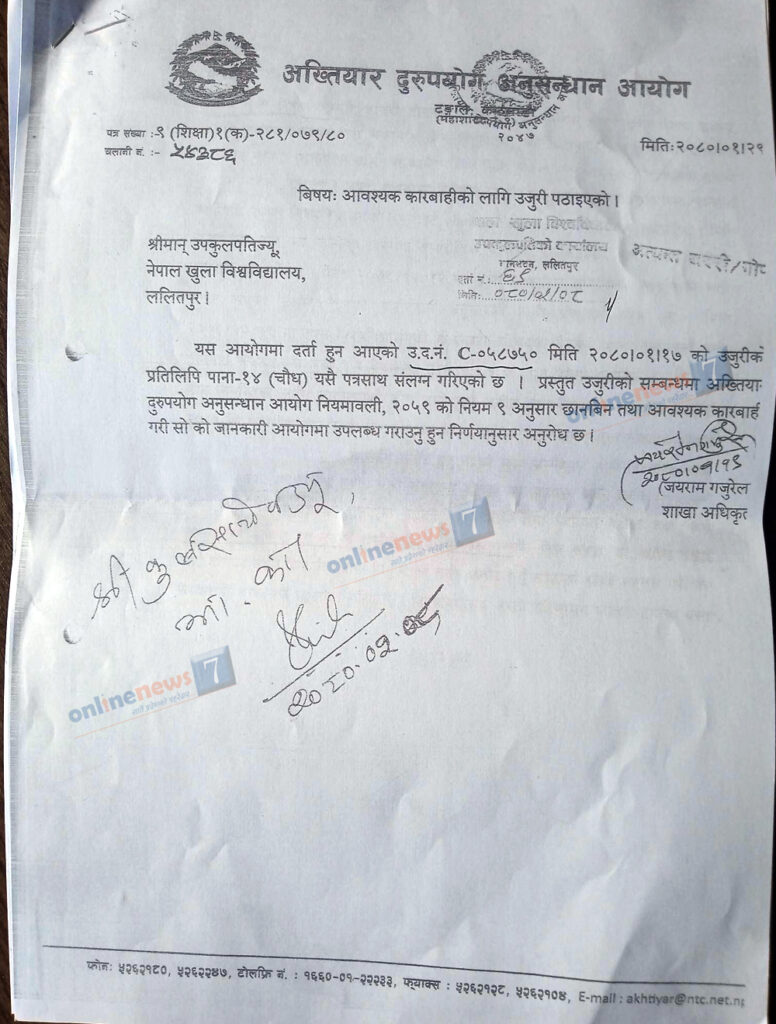 अख्तियार दुरुपयोग अनुसन्धान आयोग
टङ्गाल, काठमाडौं
२०४७
पत्र संख्या :-९ (शिक्षा)१(क)-२८१/०७९/८०
चलानी नं. :-
मिति:२०८०।०१।२९
बिषय: आवश्यक कारबाहीको लागि उजुरी पठाइएको।
श्रीमान् उपकुलपतिज्यू,
नेपाल खुला विश्वविद्यालय,
ललितपुर।
उपकुलपतिको कार्यालय
ललितपुर
दर्ता नं. ६९
मिति: ०८०/०२/०८
अत्यन्त जरुरी/गोप
यस आयोगमा दर्ता हुन आएको उ.द.नं. C-०५८७५० मिति २०८०।०१।१७ को उजुरीको
प्रतिलिपि पाना-१४ (चौध) यसै पत्रसाथ संलग्न गरिएको छ । प्रस्तुत उजुरीको सम्बन्धमा अख्तिया
दुरुपयोग अनुसन्धान आयोग नियमावली, २०५९ को नियम ९ अनुसार छानबिन तथा आवश्यक कारबाह
गरी सो को जानकारी आयोगमा उपलब्ध गराउनु हुन निर्णयानुसार अनुरोध छ।
(जयराम गजुरेल
शाखा अधिकृत
श्री
onlinenews 7
सातै प्रदेशको पहरेदार
onlinenews 7
सातै प्रदेशको पहरेदार
onlinenews 7
फोन: ५२६२१८०, ५२६२२४७, टोलफ्रि नं. : १६६०-०१-२२२३३, फ्याक्स : ५२६२१२८, ५२६२१०४, E-mail : akhtiyar@ntc.net.np